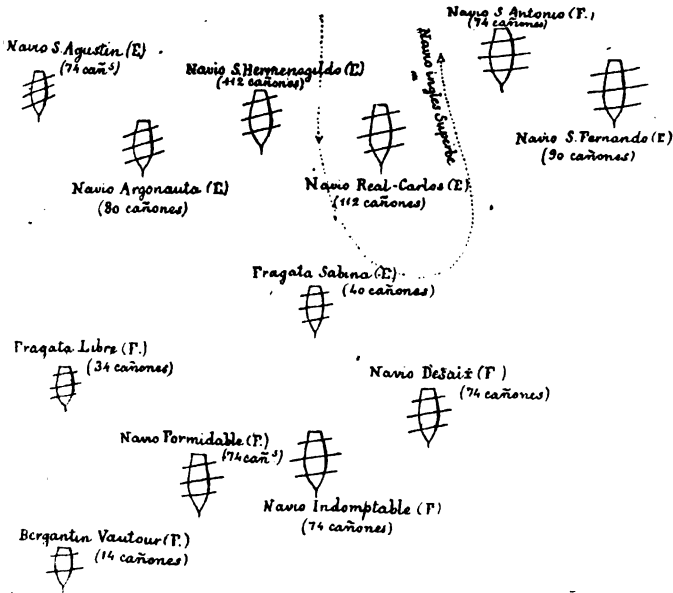 Navio S. Antonio (F.)
(74 cañones)
Navio S. Agustin (E)
(74 cañs)
Navio S. Hermenegildo (E)
(112 cañones)
Navio ingles Superbe
Navio S. Fernando (E)
(90 cañones)
Navio Argonauta (E)
(80 cañones)
Navio Real-Carlos (E)
(112 cañones)
Fragata Sabina (E)
(40 cañones)
Fragata Libre (F.)
(34 cañones)
Navio Desaix (F)
(74 cañones)
Navio Formidable (F.)
(74 cañs)
Navio Indomptable (F)
(74 cañones)
Bergantin Vautour (F.)
(14 cañones)